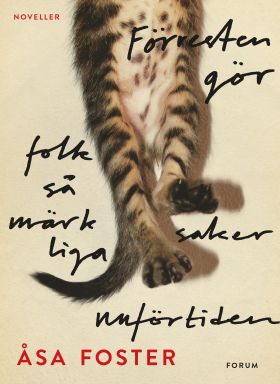 NOVELLER
Förresten
gör
folk
så
märk
liga
saker
nuförtiden
ÅSA FOSTER
FORUM